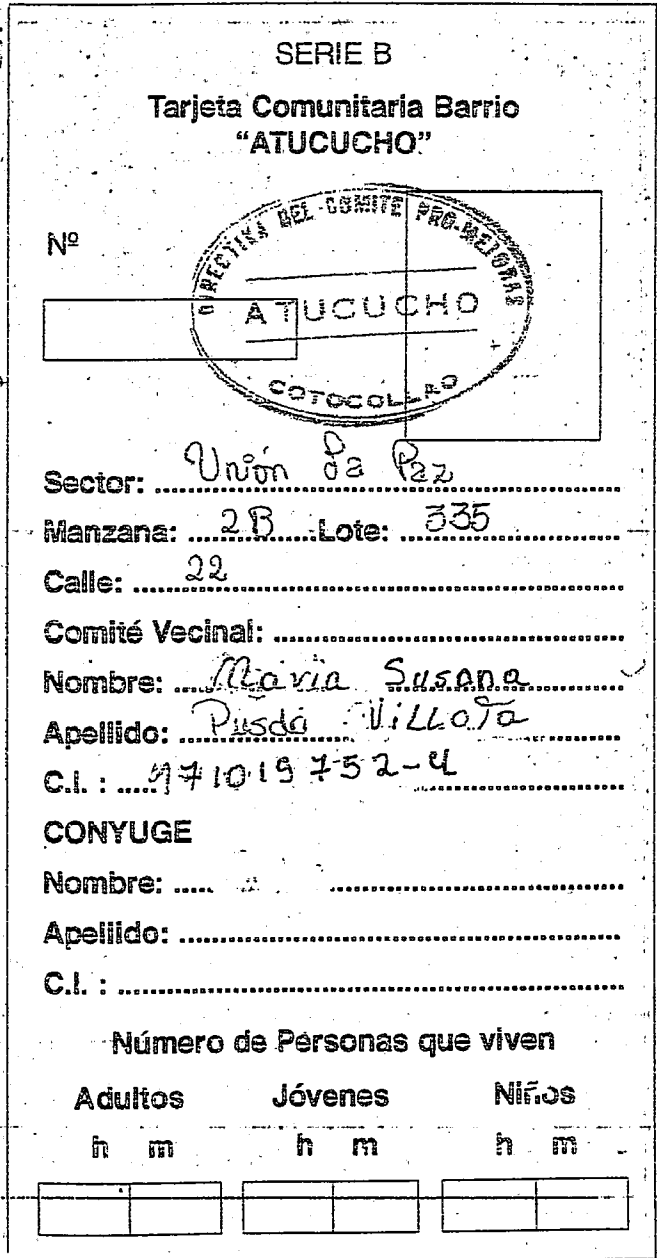 SERIE B
Tarjeta Comunitaria Barrio
"ATUCUCHO"
Nº
DIRECTIVA DEL COMITE PRO-MEJORAS
ATUCUCHO
COTOCOLLAO
Sector: Unión La Paz
Manzana: 2B Lote: 335
Calle: 22
Comité Vecinal:
Nombre: Maria Susana
Apellido: Pusdá Villota
C.I. : 171019752-4
CONYUGE
Nombre:
Apellido:
C.I. :
Número de Personas que viven
Adultos Jóvenes Niños
h m h m h m